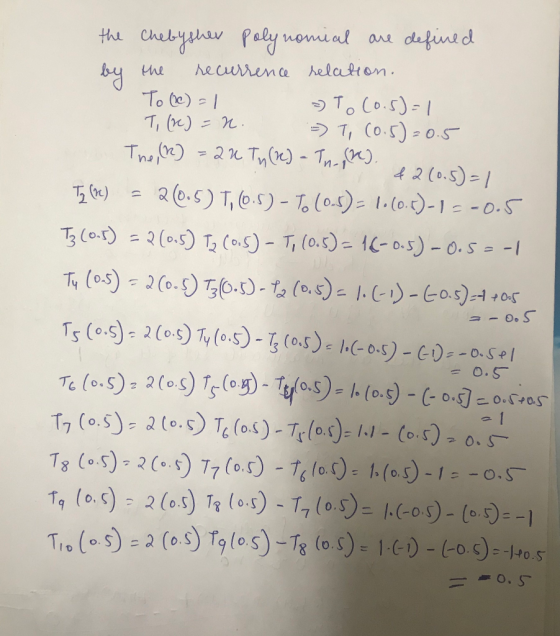 the chebyshev polynomial are defined
by the recurrence relation.
T₀(x) = 1 ⇒ T₀(0.5) = 1
T₁(x) = x. ⇒ T₁(0.5) = 0.5
Tₙ₊₁(x) = 2x Tₙ(x) - Tₙ₋₁(x).
& 2(0.5) = 1
T₂(x) = 2(0.5) T₁(0.5) - T₀(0.5) = 1.(0.5) - 1 = -0.5
T₃(0.5) = 2(0.5) T₂(0.5) - T₁(0.5) = 1(-0.5) - 0.5 = -1
T₄(0.5) = 2(0.5) T₃(0.5) - T₂(0.5) = 1.(-1) - (-0.5) = -1+0.5
= -0.5
T₅(0.5) = 2(0.5) T₄(0.5) - T₃(0.5) = 1.(-0.5) - (-1) = -0.5+1
= 0.5
T₆(0.5) = 2(0.5) T₅(0.5) - T₄(0.5) = 1.(0.5) - (-0.5] = 0.5+0.5
= 1
T₇(0.5) = 2(0.5) T₆(0.5) - T₅(0.5) = 1.1 - (0.5) = 0.5
T₈(0.5) = 2(0.5) T₇(0.5) - T₆(0.5) = 1.(0.5) - 1 = -0.5
T₉(0.5) = 2(0.5) T₈(0.5) - T₇(0.5) = 1.(-0.5) - (0.5) = -1
T₁₀(0.5) = 2(0.5) T₉(0.5) - T₈(0.5) = 1.(-1) - (-0.5) = -1+0.5
= -0.5